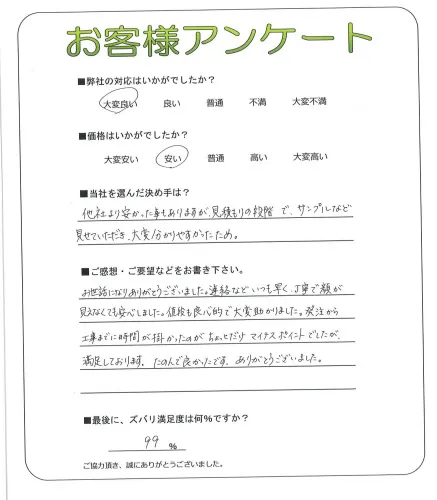 お客様アンケート
■弊社の対応はいかがでしたか?
大変良い 良い 普通 不満 大変不満
■価格はいかがでしたか?
大変安い 安い 普通 高い 大変高い
■当社を選んだ決め手は?
他社より安かった事もありますが、見積もりの段階で、サンプルなど
見せていただき、大変分かりやすかったため。
■ご感想・ご要望などをお書き下さい。
お世話になりありがとうございました。連絡など いつも早く、丁寧で顔が
見えなくても安心しました。値段も良心的で大変助かりました。発注から
工事までに時間が掛かったのが ちょっとだけ マイナスポイントでしたが、
満足しております。たのんで良かったです。ありがとうございました。
■最後に、ズバリ満足度は何%ですか?
99 %
ご協力頂き、誠にありがとうございました。